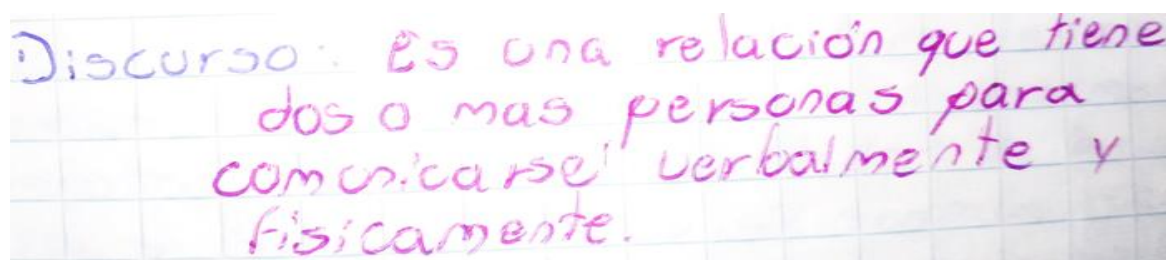 Discurso: Es una relación que tiene
dos o mas personas para
comunicarse verbalmente y
fisicamente.